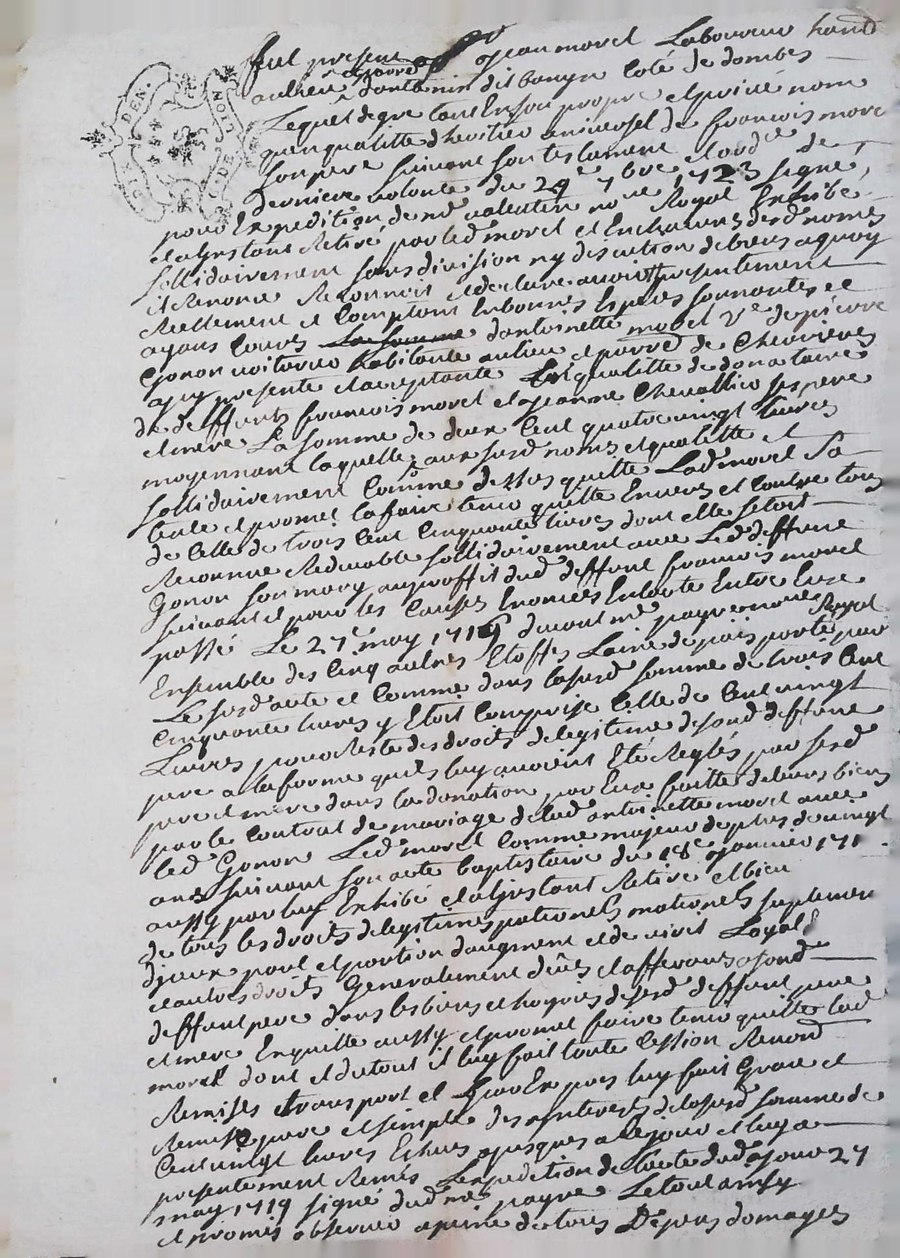 DEN. DE LION
fut present jean morel Laboureur habt
au lieu et parrd dantenin dit banyn coté de dombes
Lequel degre tant En son propre et privé nom
quen qualitte dheritier universel de francois morel
son pere suivant son testament et
derniere volonté du 29e 7bre 1723 signé
pour Expedition dud valentin nore Royal Exhibé
et a linstant Retiré par led morel et En chacun desd noms
sollidairement sans division ny discution de biens a quoy
il Renonce Reconnoit et declare avoir presentement
Reellement et comptant En bonnes Especes sonnantes et
ayant cours dantoinette morel Ve de pierre
Gonon voiturier habitante au lieu et parrd de Chevrieres
a ce presente et acceptante En qualitte de donataire
de deffunts francois morel et jeanne Chevallier ses pere
et mere La somme de deux Cent quatre vingt Livres
moyennant laquelle aux susd noms et qualitte et
sollidairement Comme dessus quitte Lad morel
et promet la faire tenir quitte Envers et contre tous
de Celle de trois Cent Cinquante livres dont elle setoit
Reconnue Redevable sollidairement avec Led deffunt
Gonon son mary au proffit dud deffunt francois morel
suivant et pour les Causes Enoncées En lacte Entre Eux
passé Le 27e may 1719 devant me payre nore Royal
Ensemble des Cinq aulnes Etoffes Laine de païs porté par
Le susd acte et Comme dans lasusd somme de trois Cent
Cinquante livres y Etoit Comprise Celle de Cent vingt
Livres pour Reste des droits de legitime de sond deffunt
pere a la forme quils luy avoient Eté Reglés par sesd
pere et mere dans la donation par Eux faitte de leurs biens
par le Contrat de mariage de lad antoinette morel avec
led Gonon Led morel Comme majeur de plus de vingt
ans suivant son acte baptistaire du 18e janvier 171
aussy par luy Exhibé et a linstant Retiré et bien
de tous les droits de legitimes paternels maternels suplement
djceux part et portion daugment et de
et autres droits Generalement deües et afferants a sond
deffunt pere dans les biens et hoyries desesd deffunt pere
et mere En quitte aussy et promet faire tenir quitte lad
morel dont et du tout il luy fait toute Cession
Remises et transport et par Exprès luy fait Grace et
Remise pure et simple des interests de lasusd somme de
Cent vingt livres Echus jusques a ce jour et luy a
presentement Remis Lexpedition de lacte dud jour 27
may 1719 signé dud me payre Le tout ainsy
et promis observer a peine de tous Depens domages